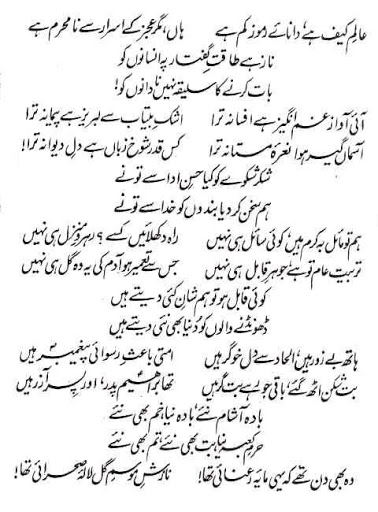 عالمِ کیف ہے، دانائے رموزِ کم ہے ہاں، مگر عجز کے اسرار سے نامحرم ہے
ناز ہے طاقتِ گفتار پہ انسانوں کو
بات کرنے کا سلیقہ نہیں نادانوں کو!
آئی آواز غم انگیز ہے افسانہ ترا اشکِ بیتاب سے لبریز ہے پیمانہ ترا
آسماں گیر ہوا نعرۂ مستانہ ترا کس قدر شوخ زباں ہے دلِ دیوانہ ترا!
شکر شکوے کو کیا حسنِ ادا سے تو نے
ہم سخن کر دیا بندوں کو خدا سے تو نے
ہم تو مائل بہ کرم ہیں، کوئی سائل ہی نہیں راہ دکھلائیں کسے؟ رہروِ منزل ہی نہیں
تربیت عام تو ہے، جوہرِ قابل ہی نہیں جس سے تعمیر ہو آدم کی یہ وہ گل ہی نہیں
کوئی قابل ہو تو ہم شانِ کئی دیتے ہیں
ڈھونڈنے والوں کو دنیا بھی نئی دیتے ہیں
ہاتھ بے زور ہیں، الحاد سے دل خوگر ہیں امتی باعثِ رسوائیِ پیغمبرؐ ہیں
بت شکن اٹھ گئے، باقی جو رہے بت گر ہیں تھا براہیمؑ پدر، اور پسر آزر ہیں
بادہ آشام نئے، بادہ نیا، خم بھی نئے
حرمِ کعبہ نیا، بت بھی نئے، تم بھی نئے
وہ بھی دن تھے کہ یہی مایۂ رعنائی تھا! نازشِ موسمِ گل لالۂ صحرائی تھا!